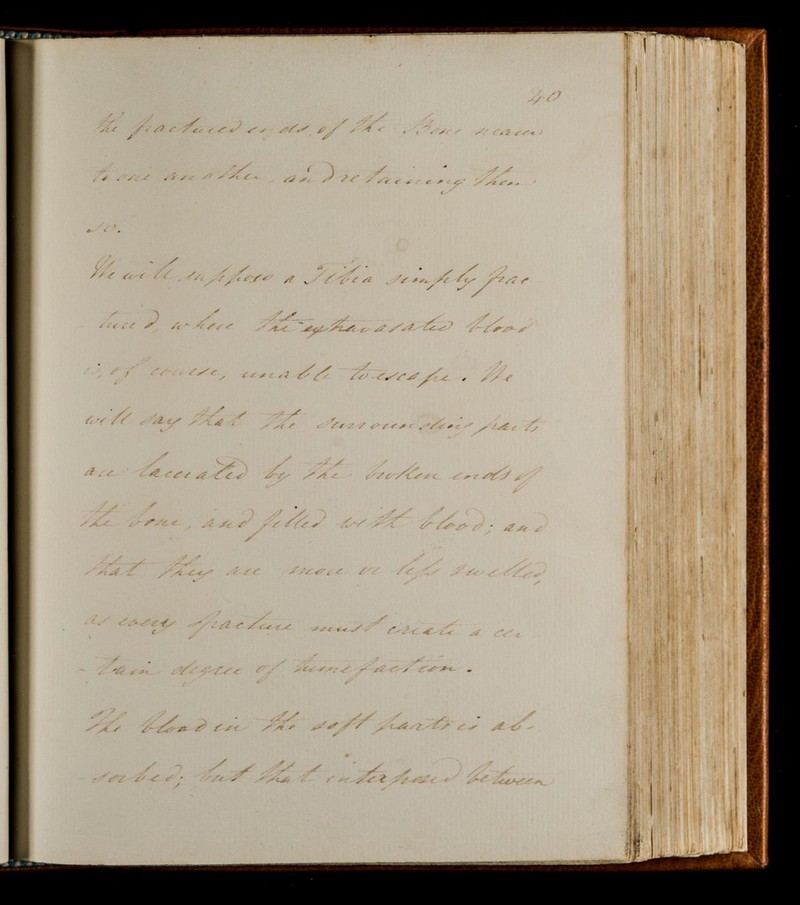 40
the fractured ends of the Bone nearer
to one another, and retaining them
so.
We will suppose a Tibia simply frac
-tured, where the extravasated blood
is, of course, unable to escape. We
will say that the surrounding parts
are lacerated by the broken ends of
the bone, and filled with blood; and
that they are more or less swelled,
as every fracture must create a cer
-tain degree of tumefaction.
The blood in the soft parts is ab-
-sorbed; but that interposed between